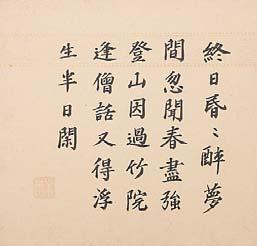 終日昏〻醉夢
間忽聞春盡強
登山因過竹院
逢僧話又得浮
生半日閑